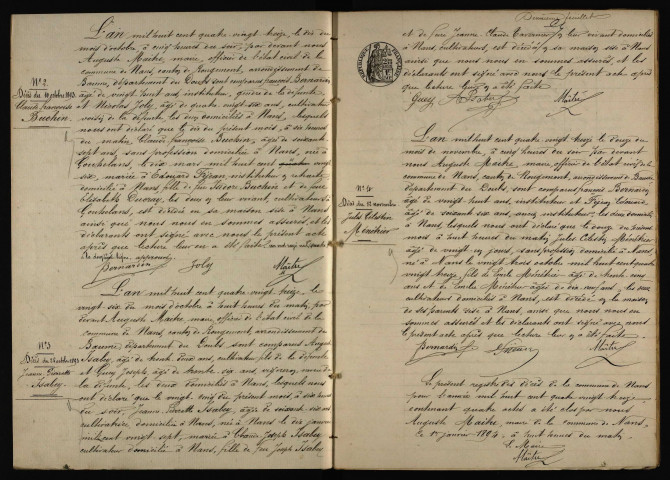 N° 2
Décès du 10 octobre 1893
Claude françoise
Buchin
L'an mil huit cent quatre vingt treize, le dix du
mois d'octobre, à cinq heures du soir, par devant nous
Auguste Maitre, maire, officier de l'état civil de la
commune de Nans, canton de Rougemont, arrondissement de
Baume, département du Doubs sont comparus françois Bornardin
âgé de vingt huit ans, instituteur, gendre de la défunte
et Nicolas Joly, âgé de quatre vingt six ans, cultivateur
voisin de la défunte les deux domiciliés à Nans, lesquels
nous ont déclaré que le dix du présent mois, à six heures
du matin, Claude françoise Buchin, âgée de soixante
sept ans, sans profession domiciliée à Nans, née à
le dix mars mil huit cent vingt
six, mariée à Edouard instituteur en retraite
domicilié à Nans fille de feu Isidore Buchin et de feue
Elisabeth les deux de leur vivant cultivateurs à
est décédée en sa maison sise à Nans
ainsi que nous nous en sommes assurés, et les
déclarants ont signé avec nous le présent acte
après que lecture leur en a été faite
Bornardin Joly Maitre
N° 3
Décès du 26 octobre 1893
Jeanne Pierrette
Issabey
L'an mil huit cent quatre vingt treize, le
vingt six du mois d'octobre à huit heures du matin, par
devant Auguste Maitre, maire, officier de l'état civil de la
commune de Nans, canton de Rougemont, arrondissement de
Baume, département du Doubs sont comparus Auguste
Issabey, âgé de trente deux ans, cultivateur fils de la défunte
et Guey Joseph, âgé de trente six ans neveu de
la défunte, les deux domiciliés à Nans, lesquels nous
ont déclaré que le vingt cinq du présent mois, à six heures
du soir, Jeanne Pierrette Issabey, âgée de soixante six ans
cultivatrice domiciliée à Nans, née à Nans le dix janvier
mil huit cent vingt sept, mariée à Claude Joseph Issabey
cultivateur domicilié à Nans, fille de feu Joseph Issabey
feuillet
et de feue Jeanne Claude de leur vivant domiciliés
à Nans, cultivateurs, est décédée en sa maison sise à Nans
ainsi que nous nous en sommes assurés, et les
déclarants ont signé avec nous le présent acte après
que lecture leur en a été faite
Guey Issabey Maitre
N° 4
Décès du 12 novembre
Jules Célestin
Ménétrier
L'an mil huit cent quatre vingt treize le douze du
mois de novembre, à cinq heures du soir par devant
nous Auguste Maitre, maire, officier de l'état civil de la
commune de Nans, canton de Rougemont, arrondissement de Baume
département du Doubs, sont comparus françois Bornardin
âgé de vingt huit ans, instituteur, et Edouard
âgé de soixante six ans, ancien instituteur, les deux domiciliés
à Nans, lesquels nous ont déclaré que le douze du présent
mois à huit heures du matin, Jules Célestin Ménétrier
âgé de vingt un jours, sans profession, domicilié à Nans,
né à Nans le vingt trois octobre mil huit cent quatre
vingt treize, fils de Emile Ménétrier âgé de trente
ans et de Ménétrier âgée de vingt ans, les deux
cultivateurs domiciliés à Nans, est décédé en la maison
de ses parents sise à Nans, ainsi que nous nous en
sommes assurés et les déclarants ont signé avec nous
le présent acte après que lecture leur en a été faite
Bornardin Maitre
Le présent registre des décès de la commune de Nans
pour l'année mil huit cent quatre vingt treize
contenant quatre actes a été clos par nous
Auguste Maitre, maire de la commune de Nans
le 1er janvier 1894 à huit heures du matin.
Le Maire
Maitre